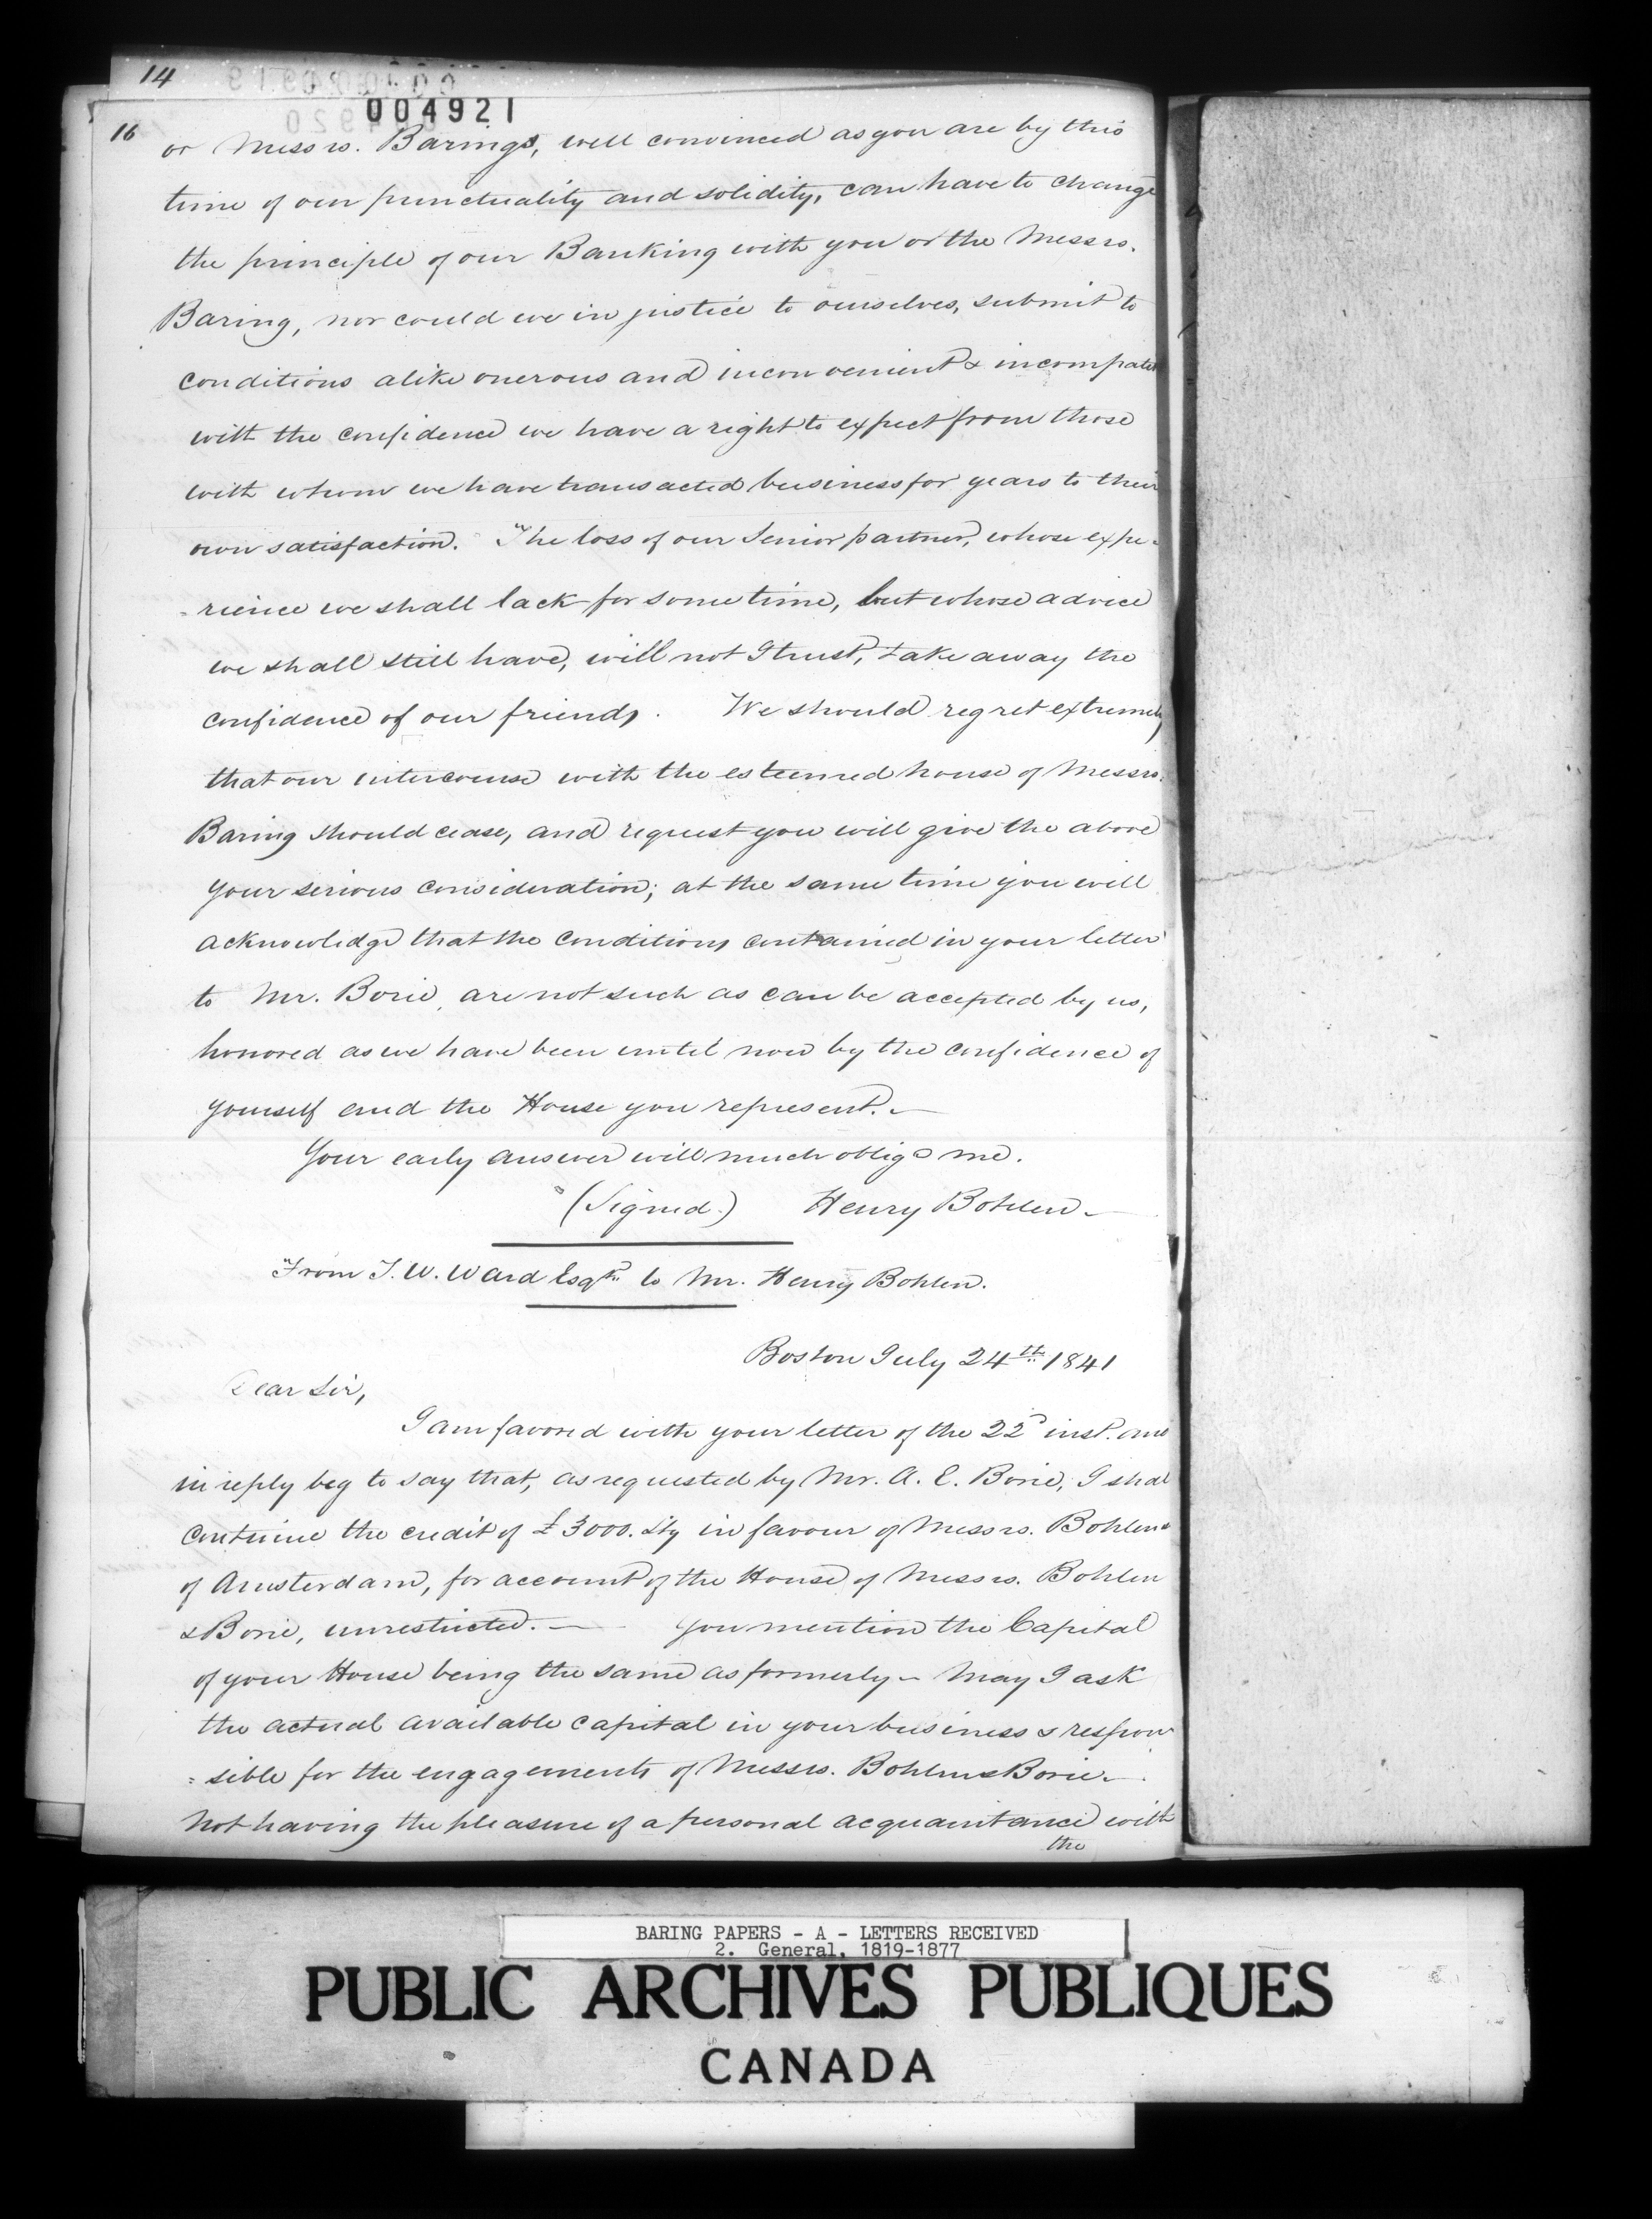 14
004921
16
or Messrs. Barings, well convinced as you are by this
time of our punctuality and solidity, can have to change
the principle of our Banking with you or the Messrs.
Baring, nor could we in justice to ourselves, submit to
conditions alike onerous and inconvenient & incompati
with the confidence we have a right to expect from those
with whom we have transacted business for years to their
own satisfaction. The loss of our Senior partner, whose expe-
-rience we shall lack for some time, but whose advice
we shall still have, will not I trust, take away the
confidence of our friends. We should regret extremely
that our intercourse with the esteemed house of Messrs.
Baring should cease, and request you will give the above
your serious consideration; at the same time you will
acknowledge that the conditions contained in your letter
to Mr. Borie, are not such as can be accepted by us,
honored as we have been until now by the confidence of
yourself and the House you represent. —
Your early answer will much oblige me.
(Signed.) Henry Bohlen —
From T. W. Ward Esqre. to Mr. Henry Bohlen.
Boston July 24th. 1841
Dear Sir,
I am favored with your letter of the 22d inst. and
in reply beg to say that, as requested by Mr. A. E. Borie, I shal
continue the credit of £3000. Stg in favour of Messrs. Bohlen
of Amsterdam, for account of the House of Messrs. Bohlen
& Borie, unrestricted. — You mention the Capital
of your House being the same as formerly — May I ask
the actual available capital in your business & respon
= sible for the engagements of Messrs. Bohlen & Borie. —
Not having the pleasure of a personal acquaintance with
the
BARING PAPERS - A - LETTERS RECEIVED
2. General, 1819-1877
PUBLIC ARCHIVES PUBLIQUES
CANADA